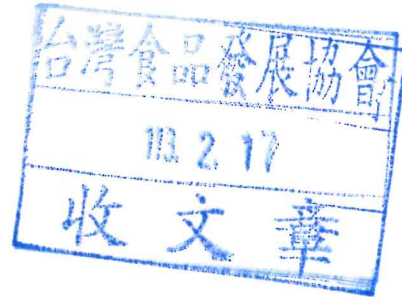 台灣食品發展協會
113. 2. 17
收文章